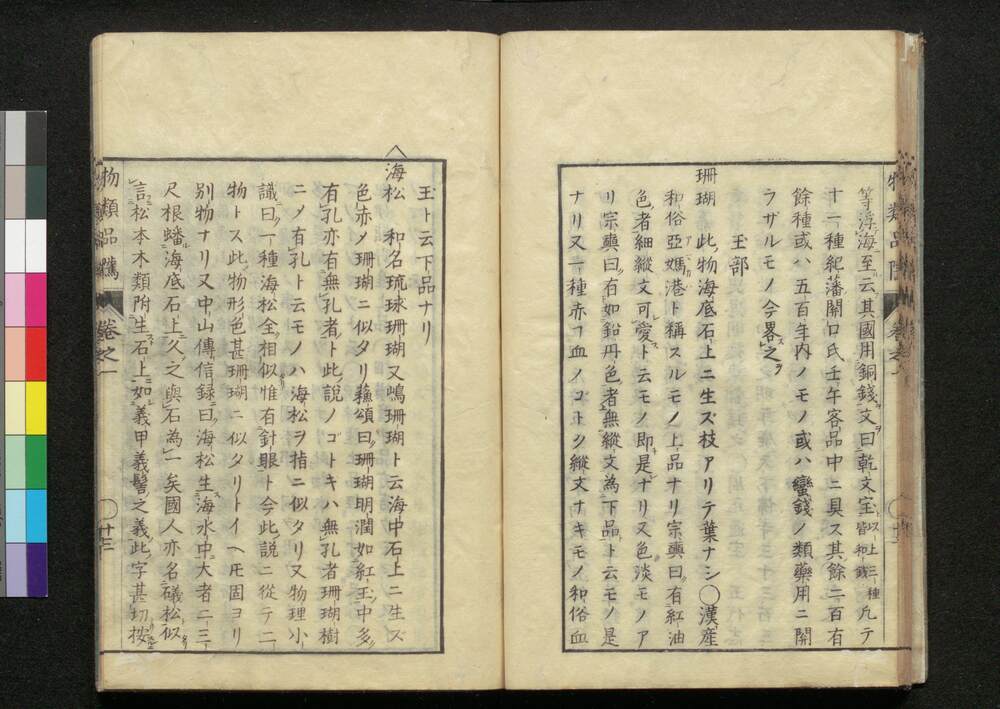 等浮海至云其國用銅錢文曰乾文宝以上三種皆和錢凡テ
十一種紀藩關口氏壬午客品中ニ具ス其餘二百有
餘種或ハ五百年内ノモノ或ハ蠻錢ノ類藥用ニ關
ラザルモノ今畧之
玉部
珊瑚 此物海底石上ニ生ズ枝アリテ葉ナシ〇漢産
和俗亞媽港ト稱スルモノ上品ナリ宗奭曰有紅油
色者細縱文可愛ト云モノ即是ナリ又色淡モノア
リ宗奭曰有如鉛丹色者無縱文為下品ト云モノ是
ナリ又一種赤フ血ノコトク縱文ナキモノ和俗血
玉ト云下品ナリ
海松 和名琉球珊瑚又嶋珊瑚ト云海中石上ニ生ズ
色赤メ珊瑚ニ似タリ蘓頌曰珊瑚明潤如紅玉中多
有孔亦有無孔者ト此説ノゴトキハ無孔者珊瑚樹
ニノ有孔ト云モノハ海松ヲ指ニ似タリ又物理小
識曰一種海松全相似惟有針眼ト今此説ニ從テ二
物トス此物形色甚珊瑚ニ似タリトイヘ𪜈固ヨリ
別物ナリ又中山傳信録曰海松生海水中大者二三
尺根蟠海底石上久之與石為一矣國人亦名礒松似
言松本木類附生石上如義甲義髻之義此字甚切按
物類品隲 卷之一 十三